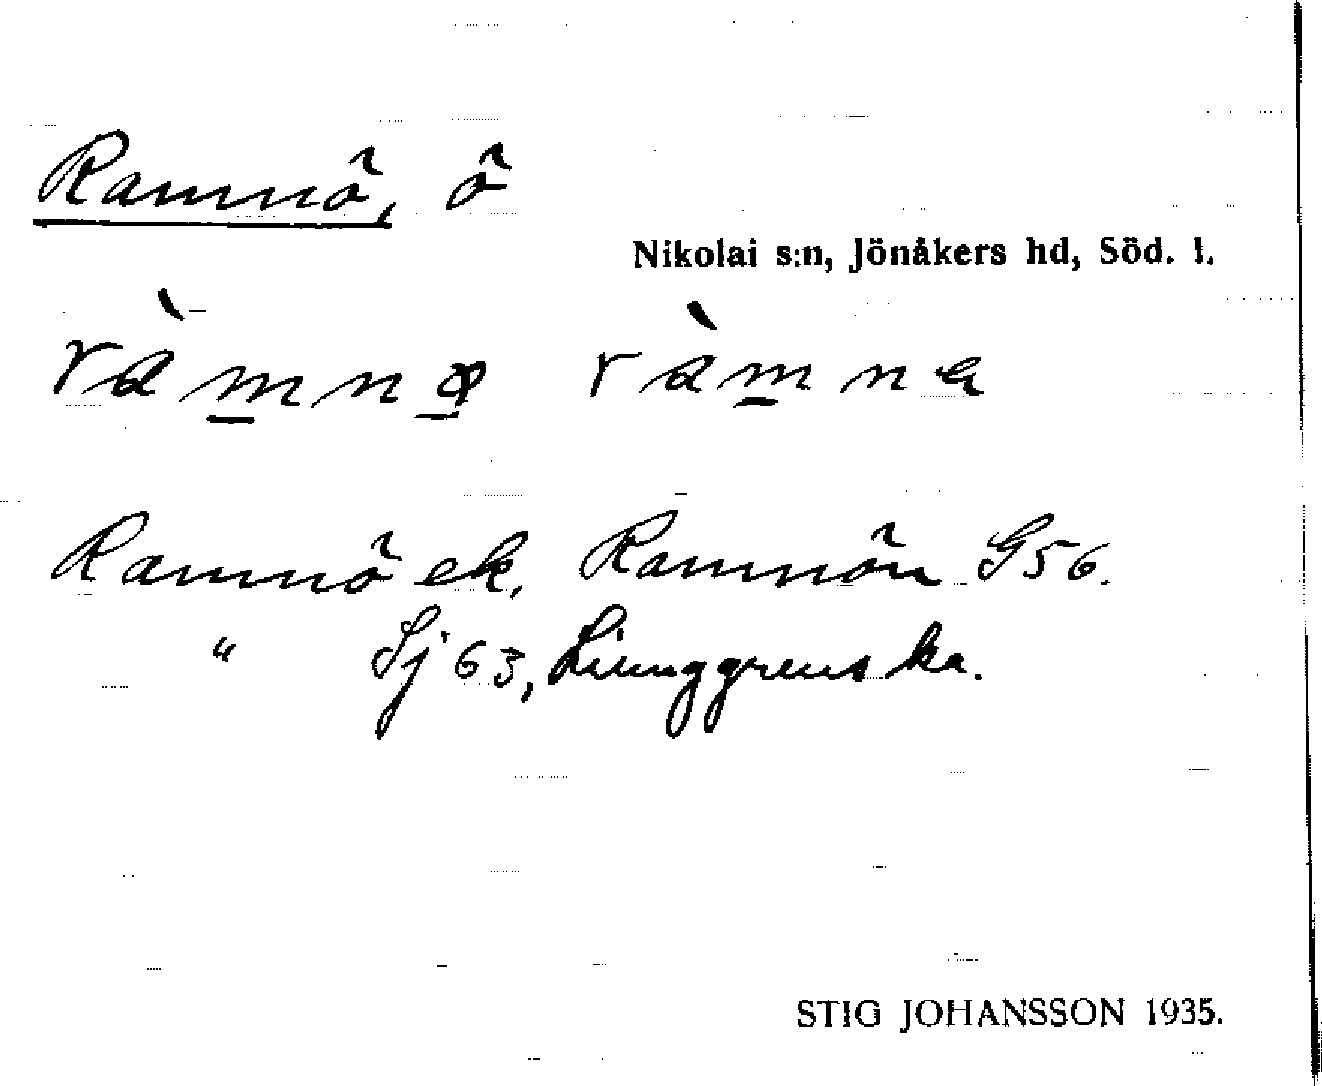 Ramnö, ö
Nikolai s:n, Jönåkers hd, Söd. l.
ràmnø ràmna
Ramnö ek. Ramnön G56.
" Sj 63, Liunggrens ka.
STIG JOHANSSON 1935.